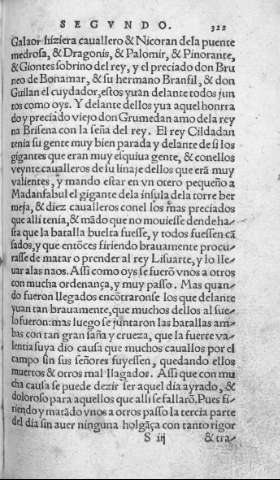 SEGVNDO. 322
Galaor hiziera cauallero & Nicoran dela puente
medrosa, & Dragonis, & Palomir, & Pinorante,
& Giontes sobrino del rey, y el preciado don Bru
neo de Bonamar, & su hermano Branfil, & don
Guilan el cuydador, estos yuan delante todos jun
tos como oys. Y delante dellos yua aquel honrra
do y preciado viejo don Grumedan amo dela rey
na Brisena con la seña del rey. El rey Cildadan
tenia su gente muy bien parada y delante de si los
gigantes que eran muy esquiua gente, & conellos
veynte caualleros de su linaje dellos que erā muy
valientes, y mando estar en vn otero pequeño a
Madanfabul el gigante dela insula dela torre ber
meja, & diez caualleros conel los mas preciados
que alli tenia, & mādo que no mouiesse dende ha-
sta que la batalla buelta fuesse, y todos fuessen cā
sados, y que entōces firiendo brauamente procu-
rasse de matar o prender al rey Lisuarte, y lo lle-
uar alas naos. Assi como oys se fuerō vnos a otros
con mucha ordenança, y muy passo. Mas quan-
do fueron llegados encōtraronse los que delante
yuan tan brauamente, que muchos dellos al sue-
lo fueron: mas luego se juntaron las batallas am-
bas con tan gran saña y crueza, que la fuerte va-
lentia suya dio causa que muchos cauallos por el
campo sin sus señores fuyessen, quedando ellos
muertos & otros mal llagados. Assi que con mu
cha causa se puede dezir ser aquel dia ayrado, &
doloroso para aquellos que alli se fallarō. Pues fi-
riendo y matādo vnos a otros passo la tercia parte
del dia sin auer ninguna holgāça con tanto rigor
S iij & tra-